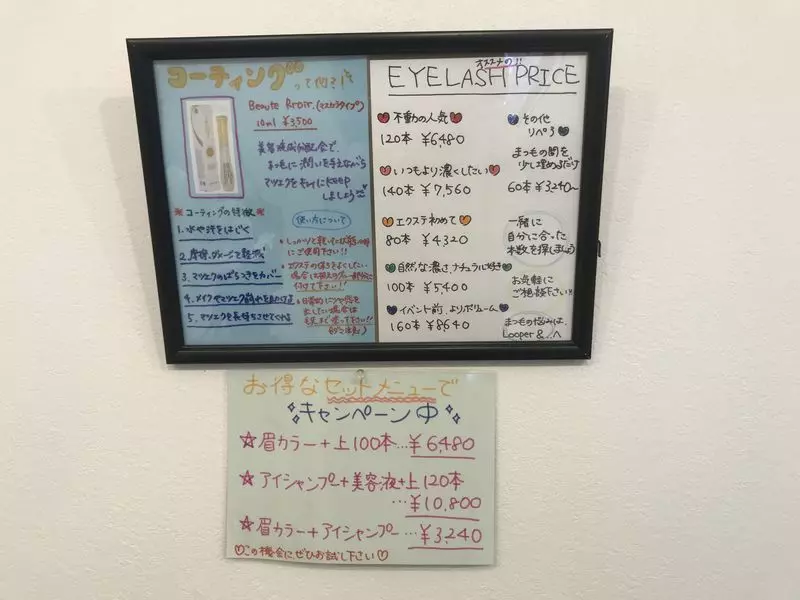 コーティングって何?!
Beaute Rroir.(マスカラタイプ)
10ml ¥3,500
美容液成分配合で、
まつ毛に潤いを与えながら
マツエクをキレイにkeep
しましょう
※コーティングの特徴※
1. 水や汗をはじく
2. 摩擦、ダメージを軽減
3. マツエクのばらつきをカバー
4. メイクやマツエク
5. マツエクを長持ちさせてくれる
使い方について
にご使用下さい!!
エクステの保ちをよくしたい
場合は根元のグルー部分に
付けて下さい!!
出したい場合は
毛先まで塗って下さい!!
オススメの!!
EYELASH PRICE
不動の人気
120本 ¥6480
いつもより濃くしたい
140本 ¥7,560
エクステ初めて
80本 ¥4,320
自然な濃さ、ナチュラル好き
100本 ¥5400
イベント前、よりボリューム
160本 ¥8640
その他
リペア
まつ毛の間を
少し埋めるだけ
60本 ¥3,240~
一緒に
自分に合った
本数を探しましょう
お気軽に
ご相談下さい!!
まつ毛の悩みは、
Looper &...へ
お得なセットメニューで
キャンペーン中
☆眉カラー+上100本...¥6,480
☆アイシャンプー+美容液+上120本
...¥10,800
☆眉カラー+アイシャンプー...¥3,240
♡この機会にぜひお試し下さい♡